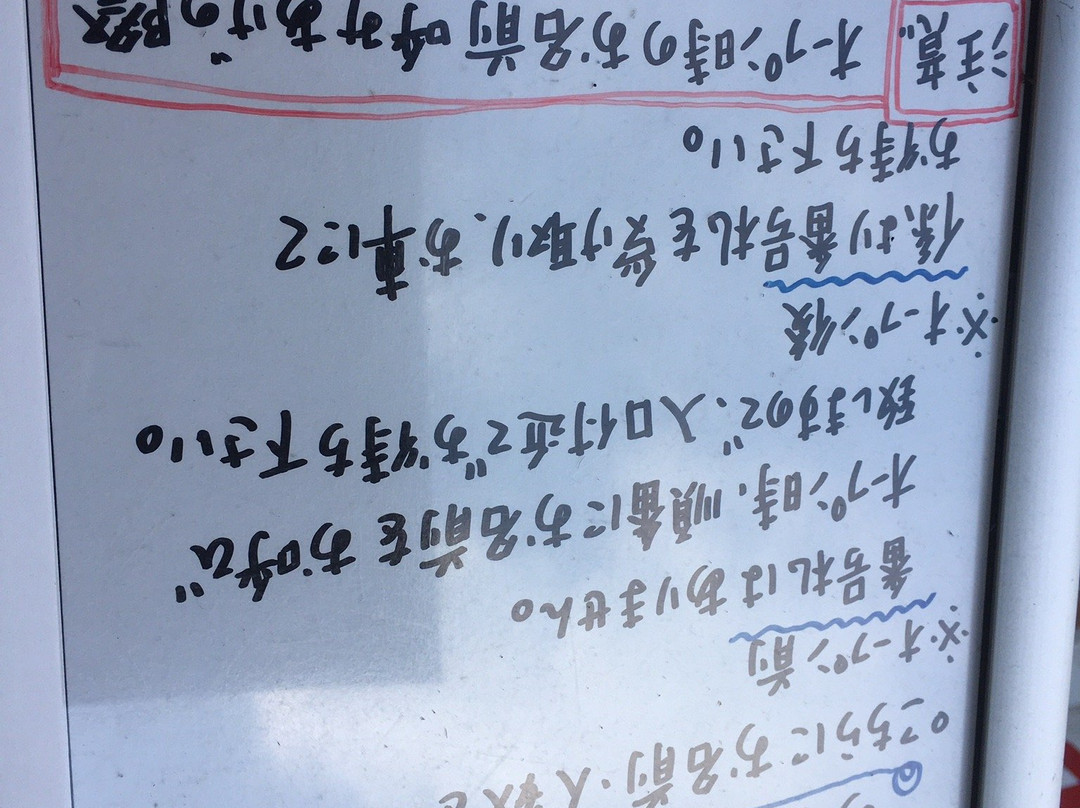 ○こちらにお名前・人数を
※オープン前
番号札はありません。
オープン時、順番にお名前をお呼び
致しますので、入口付近でお待ち下さい。
※オープン後
係より番号札を受け取り、お車にて
お待ち下さい。
注意 オープン時のお名前呼びあげの際